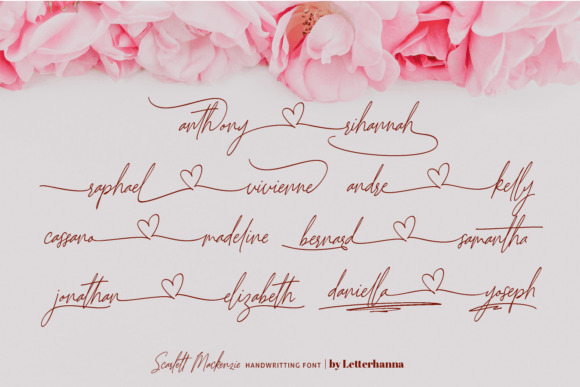 anthony rihannah
raphael vivienne andre kelly
cassano madeline bernard samantha
jonathan elizabeth daniella yoseph
Scarlett Mackenzie HANDWRITTING FONT | by Letterhanna